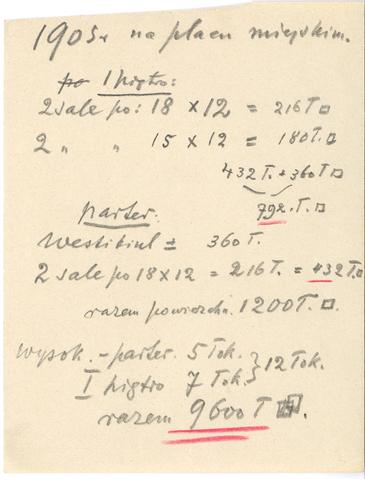 1905 r na placu miejskim.
po I piętro:
2 sale po: 18 × 12 = 216 T □
2 " " 15 × 12 = 180 T. □
432 T. + 360 T □
792. T. □
parter.
Westibiul ± 360 T.
2 sale po 18 × 12 = 216 T. = 432 T. □
razem powierzchn. 1200 T. □.
wysok. - parter. 5 Tok. } 12 Tok.
I piętro 7 Tok. }
razem 9600 T